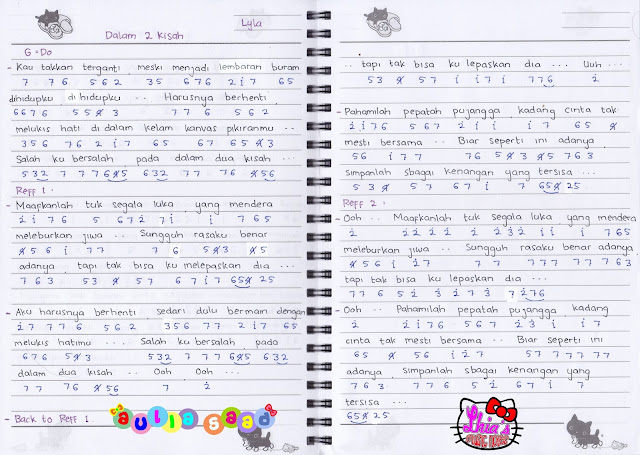 Lyla
Dalam 2 Kisah
G = Do
- Kau takkan terganti meski menjadi lembaran buram
7 7 6 5 6 2 3 5 6 7 6 2 i 7 6 5
dihidupku di hidupku .. Harusnya berhenti
6 6 7 6 5 5 5̸ 3 7 7 6 5 6 2
melukis hati di dalam kelam kanvas pikiranmu ..
3 5 6 7 6 2 i 7 6 5 6 7 6 5 5̸ 3
Salah ku bersalah pada dalam dua kisah ...
5 3 2 7 7 7 6 4̸ 5 6 3 2 7 7 7 6 4̸ 5 6
Reff 1 :
- Maafkanlah tuk segala luka yang mendera
2 i 7 6 5 6 7 2 7 i i 7 6 5
meleburkan jiwa .. Sungguh rasaku benar
4̸ 5 6 i 7 7 7 6 5 4̸ 3 4̸ 5
adanya tapi tak bisa ku melepaskan dia ...
7 6 3 5 3 4̸ 5 7 6 7 i 7 6 5 4̸ 2 5
- Aku harusnya berhenti sedari dulu bermain dengan
2 7 7 7 6 5 6 2 3 5 6 7 7 2 i 7 6 5
melukis hatimu .... Salah ku bersalah pada
6 7 6 5 4̸ 3 5 3 2 7 7 7 6 4̸ 5 6 3 2
dalam dua kisah .. Ooh .. Ooh ..
7 7 7 6 4̸ 5 6 7 2
- Back to Reff 1.
aulia saad
.. tapi tak bisa ku lepaskan dia ... Uuh ...
5 3 4̸ 5 7 i i 7 i 7 7 6 2
- Pahamilah pepatah pujangga kadang cinta tak
2 i 7 6 5 6 7 2 i i i 7 6 5 4̸
mesti bersama .. Biar seperti ini adanya
5 6 i 7 7 7 6 5 4̸ 3 4̸ 5 7 6 3
simpanlah sbagai kenangan yang tersisa ...
5 3 4̸ 5 7 6 7 i 7 6 5 4̸ 2 5
Reff 2 :
- Ooh .. Maafkanlah tuk segala luka yang mendera
2 2 2 2 2 2 3 2 i i i 7 6 5
meleburkan jiwa .. Sungguh rasaku benar adanya
4̸ 5 6 i 2 7 7 7 7 7 7 7 6 3
tapi tak bisa ku lepaskan dia ...
7 7 6 5 2 3 2 7 3 7 2 7 6
- Ooh .. Pahamilah pepatah pujangga kadang
2 2 i 7 6 5 6 7 2 3 i i 7
cinta tak mesti bersama .. Biar seperti ini
6 5 4̸ 5 6 i 2 7 5 7 7 7 7 7
adanya simpanlah sbagai kenangan yang
7 6 3 7 7 6 5 2 6 7 i 7
tersisa ...
6 5 4̸ 2 5
Lhia's